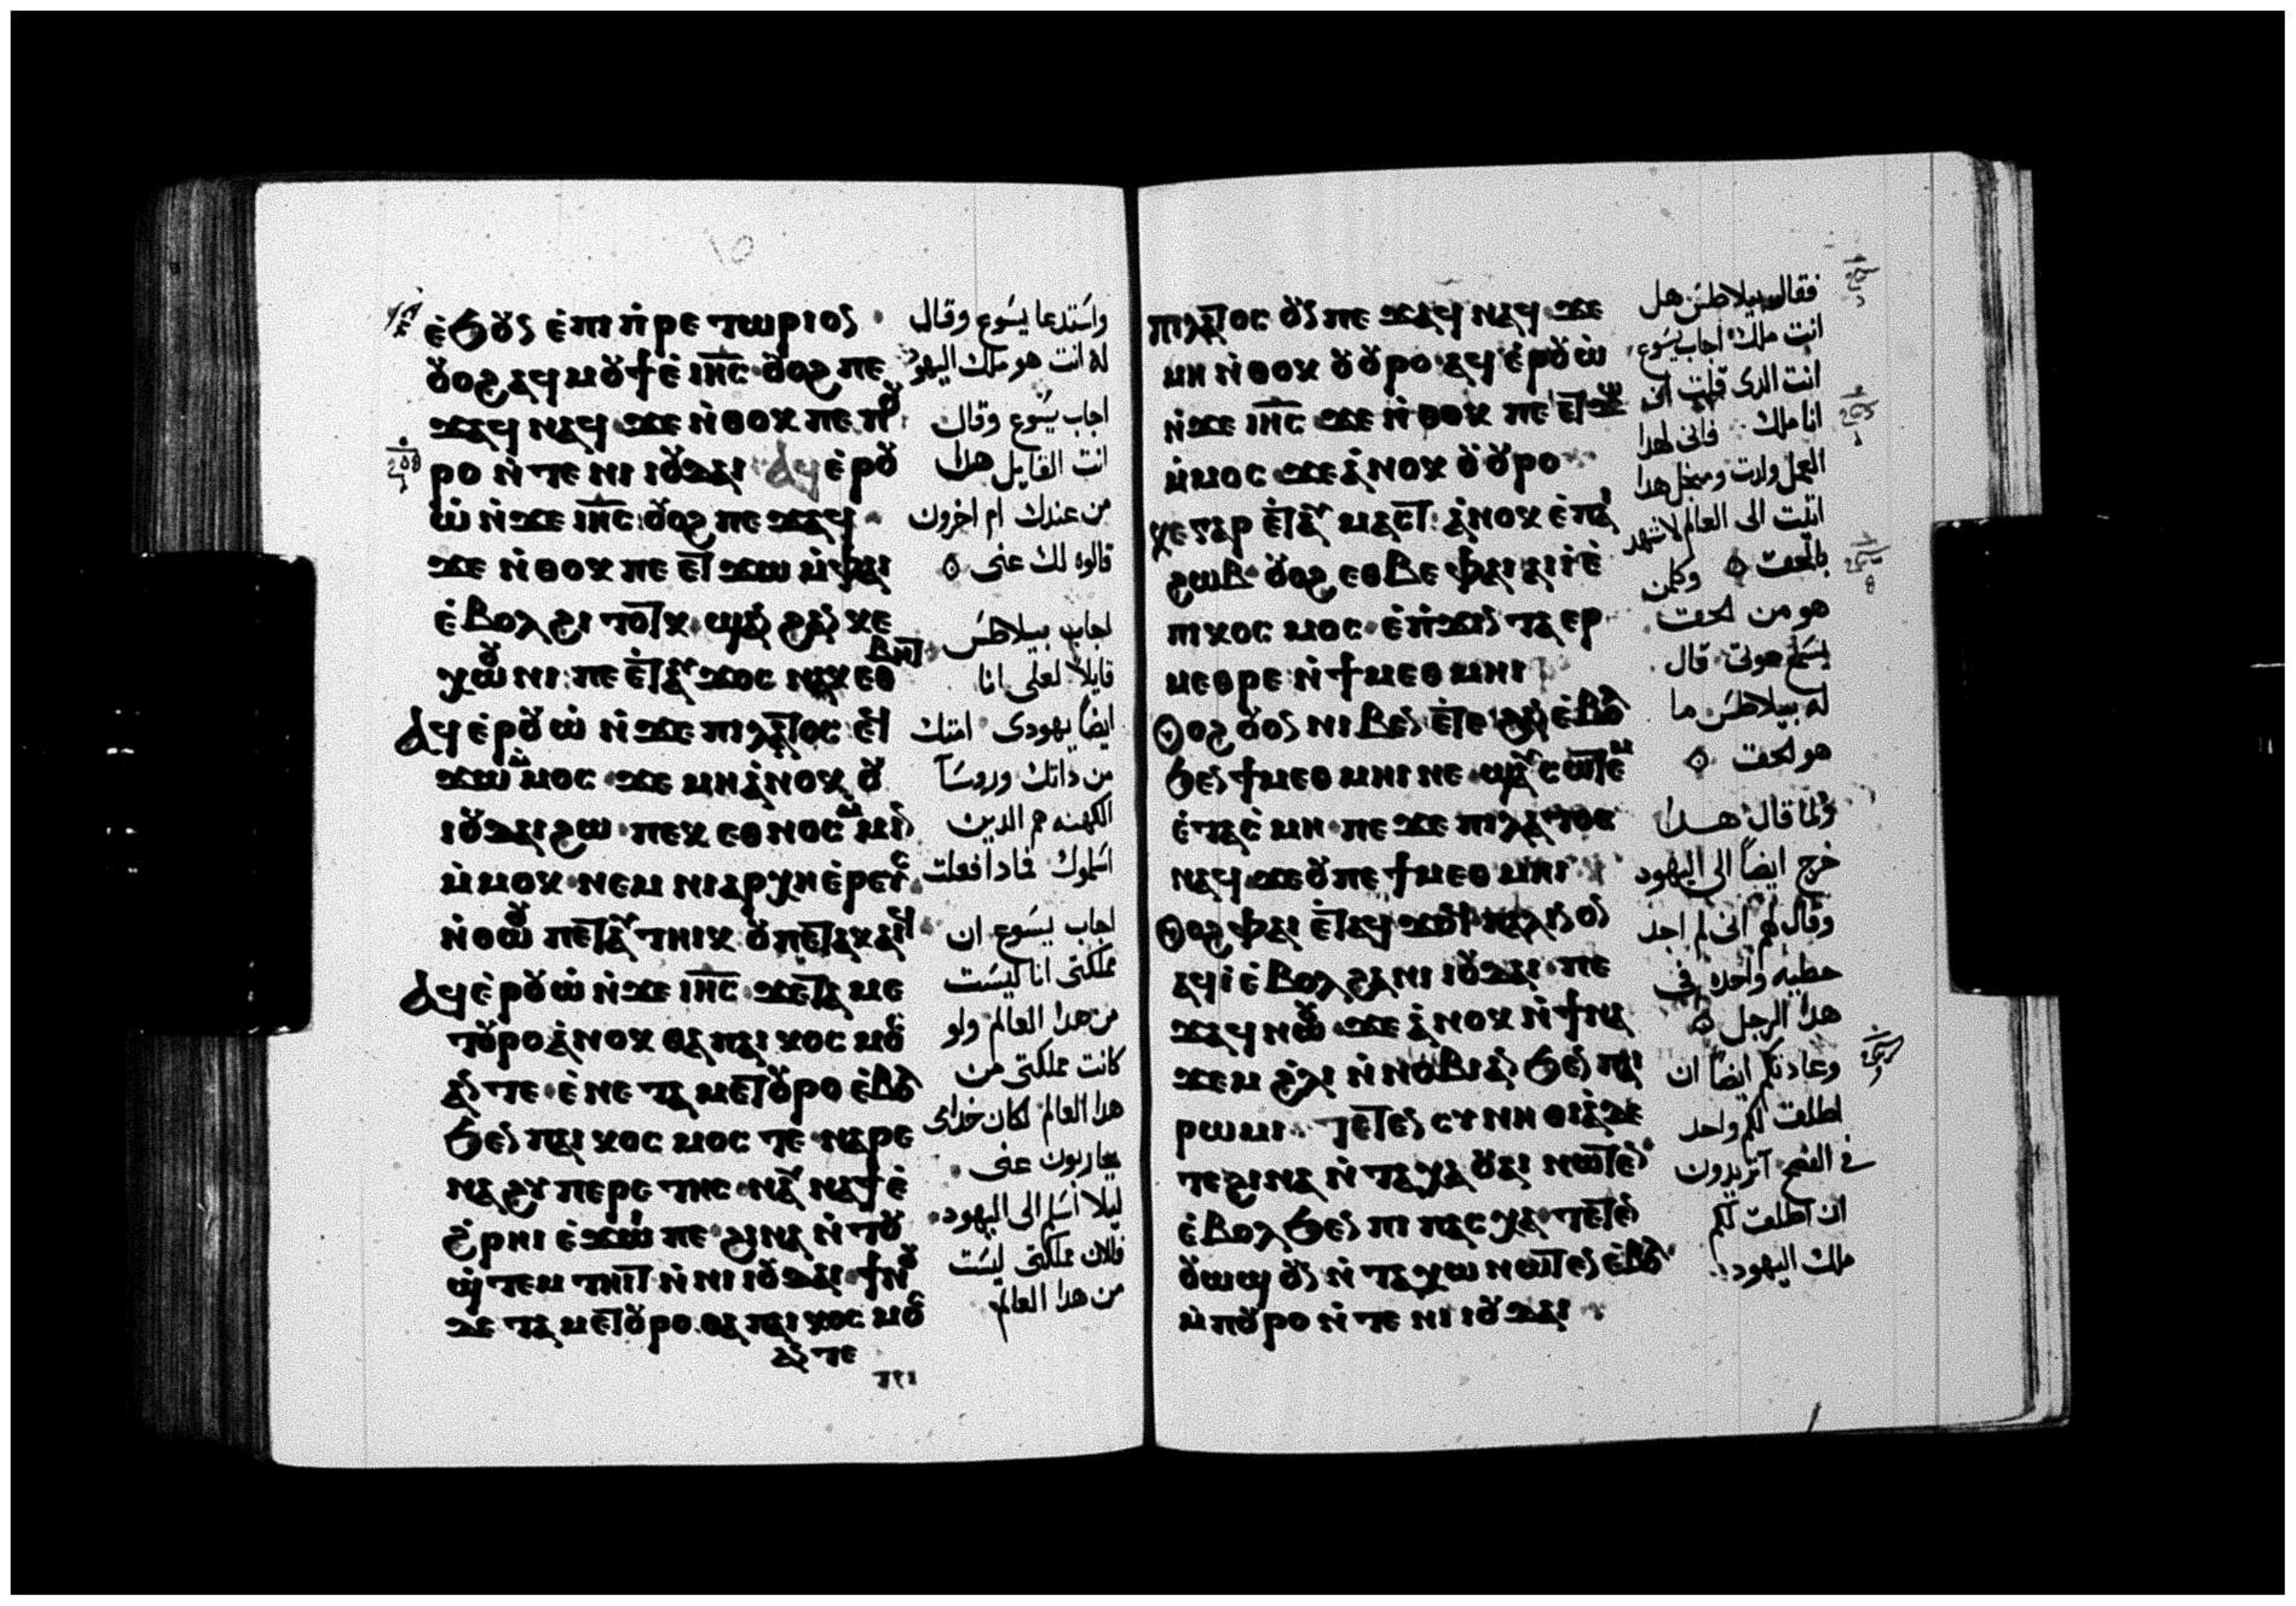 ⲉ̀ϧⲟⲩⲛ ⲉ̀ⲡⲓ ⲡ̀ⲣⲉⲧⲱⲣⲓⲟⲛ ·
ⲟⲩⲟϩ ⲁϥⲙⲟⲩϯ ⲉ̀ⲓⲏ̅ⲥ̅ · ⲟⲩⲟϩ ⲡⲉ
ϫⲁϥ ⲛⲁϥ ϫⲉ ⲛ̀ⲑⲟⲕ ⲡⲉ ⲡⲟⲩ
ⲣⲟ ⲛ̀ⲧⲉ ⲛⲓ ⲓⲟⲩⲇⲁⲓ ⲁϥⲉ̀ⲣⲟⲩ
ⲱ̀ ⲛ̀ϫⲉ ⲓⲏ̅ⲥ̅ : ⲟⲩⲟϩ ⲡⲉϫⲁϥ
ϫⲉ ⲛ̀ⲑⲟⲕ ⲡⲉⲧ ϫⲱ ⲙ̀ⲫⲁⲓ
ⲉ̀ⲃⲟⲗ ϩⲓⲧⲟⲧⲕ · ϣⲁⲛ ϩⲁⲛ ⲕⲉ
ⲭⲱⲟⲩⲛⲓ : ⲡⲉ ⲉ̀ⲧⲁⲩ ϫⲟⲥ ⲛⲁⲕ ⲉⲑ
ⲃⲏⲧ
ⲁϥⲉ̀ⲣⲟⲩⲱ̀ ⲛ̀ϫⲉ ⲡⲓⲗⲁⲧⲟⲥ ⲉϥ
ϫⲱ ⲙⲙⲟⲥ · ϫⲉ ⲙⲏ ⲁⲛⲟⲕ ⲟⲩ
ⲓⲟⲩⲇⲁⲓ ϩⲱ · ⲡⲉⲕ ⲉⲑⲛⲟⲥ ⲙⲙⲓⲛ
ⲙ̀ⲙⲟⲕ · ⲛⲉⲙ ⲛⲓⲁⲣⲭⲏⲉ̀ⲣⲉⲩⲥ
ⲛ̀ⲑⲱⲟⲩ ⲡⲉⲧⲁⲩ ⲧⲏⲓⲕ ⲟⲩ ⲡⲉⲧⲁⲕⲁⲓϥ
ⲁϥⲉ̀ⲣⲟⲩⲱ̀ ⲛ̀ϫⲉ ⲓⲏ̅ⲥ̅ · ϫⲉ ⲧⲁ ⲙⲉ
ⲧⲟⲩⲣⲟ ⲁ̀ⲛⲟⲕ ⲑⲁ ⲡⲁⲓ ⲕⲟⲥⲙⲟⲥ
ⲁⲛ ⲧⲉ · ⲉ̀ⲛⲉ ⲧⲁ ⲙⲉⲧⲟⲩⲣⲟ ⲉ̀ⲃⲟⲗ
ϧⲉⲛ ⲡⲁⲓ ⲕⲟⲥⲙⲟⲥ ⲧⲉ · ⲛⲁⲣⲉ
ⲛⲁ ϩⲩⲡⲉⲣⲉⲧⲏⲥ · ⲛⲁⲩ ⲛⲁϯ ⲉ̀
ϩ̀ⲣⲏⲓ ⲉ̀ϫⲱⲓ ⲡⲉ · ϩⲓⲛⲁ ⲛ̀ⲧⲟⲩ
ϣ̀ⲧⲉⲙ ⲧⲏⲓⲧ ⲛ̀ⲛⲓ ⲓⲟⲩⲇⲁⲓ · ϯⲛⲟⲩ
ⲇⲉ ⲧⲁ ⲙⲉⲧⲟⲩⲣⲟ · ⲑⲁ ⲡⲁⲓ ⲕⲟⲥⲙⲟⲥ
ⲁⲛ ⲧⲉ
واستدعا يسوع وقال
له انت هو ملك اليهود
اجاب يسوع وقال
انت القايل هدا
من عندك ام اخرون
قالوه لك عنى
اجاب بيلاطس
قايلا لعلى انا
ايضاً يهودى امتك
من داتك وروسا
الكهنه هم الدين
اسلموك فمادا فعلت
اجاب يسوع ان
مملكتى انا ليست
من هدا العالم ولو
كانت مملكتى من
هدا العالم لكان خدامى
يحاربون عنى
ليلا اسلم الى اليهود
فالان مملكتى ليست
من هدا العالم
ⲡⲓⲗⲁⲧⲟⲥ ⲟⲩⲛ ⲡⲉϫⲁϥ ⲛⲁϥ ϫⲉ
ⲙⲏ ⲛ̀ⲑⲟⲕ ⲟⲩ ⲟⲩⲣⲟ · ⲁϥⲉ̀ⲣⲟⲩⲱ̀
ⲛ̀ϫⲉ ⲓⲏ̅ⲥ̅ ϫⲉ ⲛ̀ⲑⲟⲕ ⲡⲉⲧϫⲱ
ⲙ̀ⲙⲟⲥ ϫⲉ ⲁ̀ⲛⲟⲕ ⲟⲩ ⲟⲩⲣⲟ
ⲭⲉ ⲅⲁⲣ ⲉ̀ⲧⲁⲩ ⲙⲁⲥⲧ : ⲁ̀ⲛⲟⲕ ⲉ̀ⲡⲁⲓ
ϩⲱⲃ · ⲟⲩⲟϩ ⲉⲑⲃⲉ ⲫⲁⲓ ⲁⲓⲓ̀ ⲉ̀
ⲡⲓⲕⲟⲥⲙⲟⲥ · ⲉ̀ⲡ̀ϫⲓⲛ ⲧⲁ ⲉⲣ
ⲙⲉⲑⲣⲉ · ⲛ̀ϯⲙⲉⲑⲙⲏⲓ
Ⲟⲩⲟϩ ⲟⲩⲟⲛ ⲛⲓⲃⲉⲛ ⲉ̀ⲧⲉ ϩⲁⲛ ⲉ̀ⲃⲟⲗ
ϧⲉⲛ ϯⲙⲉⲑⲙⲏⲓ ⲛⲉ · ϣⲁⲩ ⲥⲱⲧⲉⲙ
ⲉ̀ⲧⲁⲥⲙⲏ · ⲡⲉϫⲉ ⲡⲓⲗⲁⲧⲟⲥ
ⲛⲁϥ · ϫⲉ ⲟⲩ ⲡⲉ ϯⲙⲉⲑⲙⲏⲓ
Ⲟⲩⲟϩ ⲫⲁⲓ ⲉ̀ⲧⲁϥ ϫⲟϥ ⲡⲁⲗⲓⲛ ⲟⲛ
ⲁϥⲓ̀ ⲉ̀ⲃⲟⲗ ϩⲁ ⲛⲓ ⲓⲟⲩⲇⲁⲓ · ⲡⲉ
ϫⲁϥ ⲛⲱⲟⲩ · ϫⲉ ⲁ̀ⲛⲟⲕ ⲛ̀ϯⲛⲁ
ϫⲉⲙ ϩ̀ⲗⲓ ⲛ̀ⲛⲟⲃⲓ ⲁⲛ ϧⲉⲛ ⲡⲁⲓ
ⲣⲱⲙⲓ · ⲧⲉⲧⲉⲛ ⲥⲩⲛⲏⲑⲓⲁ̀ ⲇⲉ
ⲧⲉ ϩⲓⲛⲁ ⲛ̀ⲧⲁ ⲭⲁ ⲟⲩⲁⲓ ⲛⲱⲧⲉⲛ
ⲉ̀ⲃⲟⲗ ϧⲉⲛ ⲡⲓ ⲡⲁⲥⲭⲁ · ⲧⲉⲧⲉⲛ
ⲟⲩⲱϣ ⲟⲩⲛ ⲛ̀ⲧⲁ ⲭⲱ ⲛⲱⲧⲉⲛ ⲉ̀ⲃⲟⲗ
ⲙ̀ⲡⲟⲩⲣⲟ ⲛ̀ⲧⲉ ⲛⲓ ⲓⲟⲩⲇⲁⲓ
فقال بيلاطس هل
انت ملك اجاب يسوع
انت الدى قلت انى
انا ملك فانى لهدا
العمل ولدت ومن اجل هدا
اتيت الى العالم لاشهد
بالحق وكلمن
هو من الحق
يسمع صوتى قال
له بيلاطس ما
هو الحق
ولما قال هدا
خرج ايضاً الى اليهود
وقال لهم انى لم اجد
خطيه واحده فى
هدا الرجل
وعادتكم ايضاً ان
اطلق لكم واحد
فى الفصح اتريدون
ان اطلق لكم
ملك اليهود